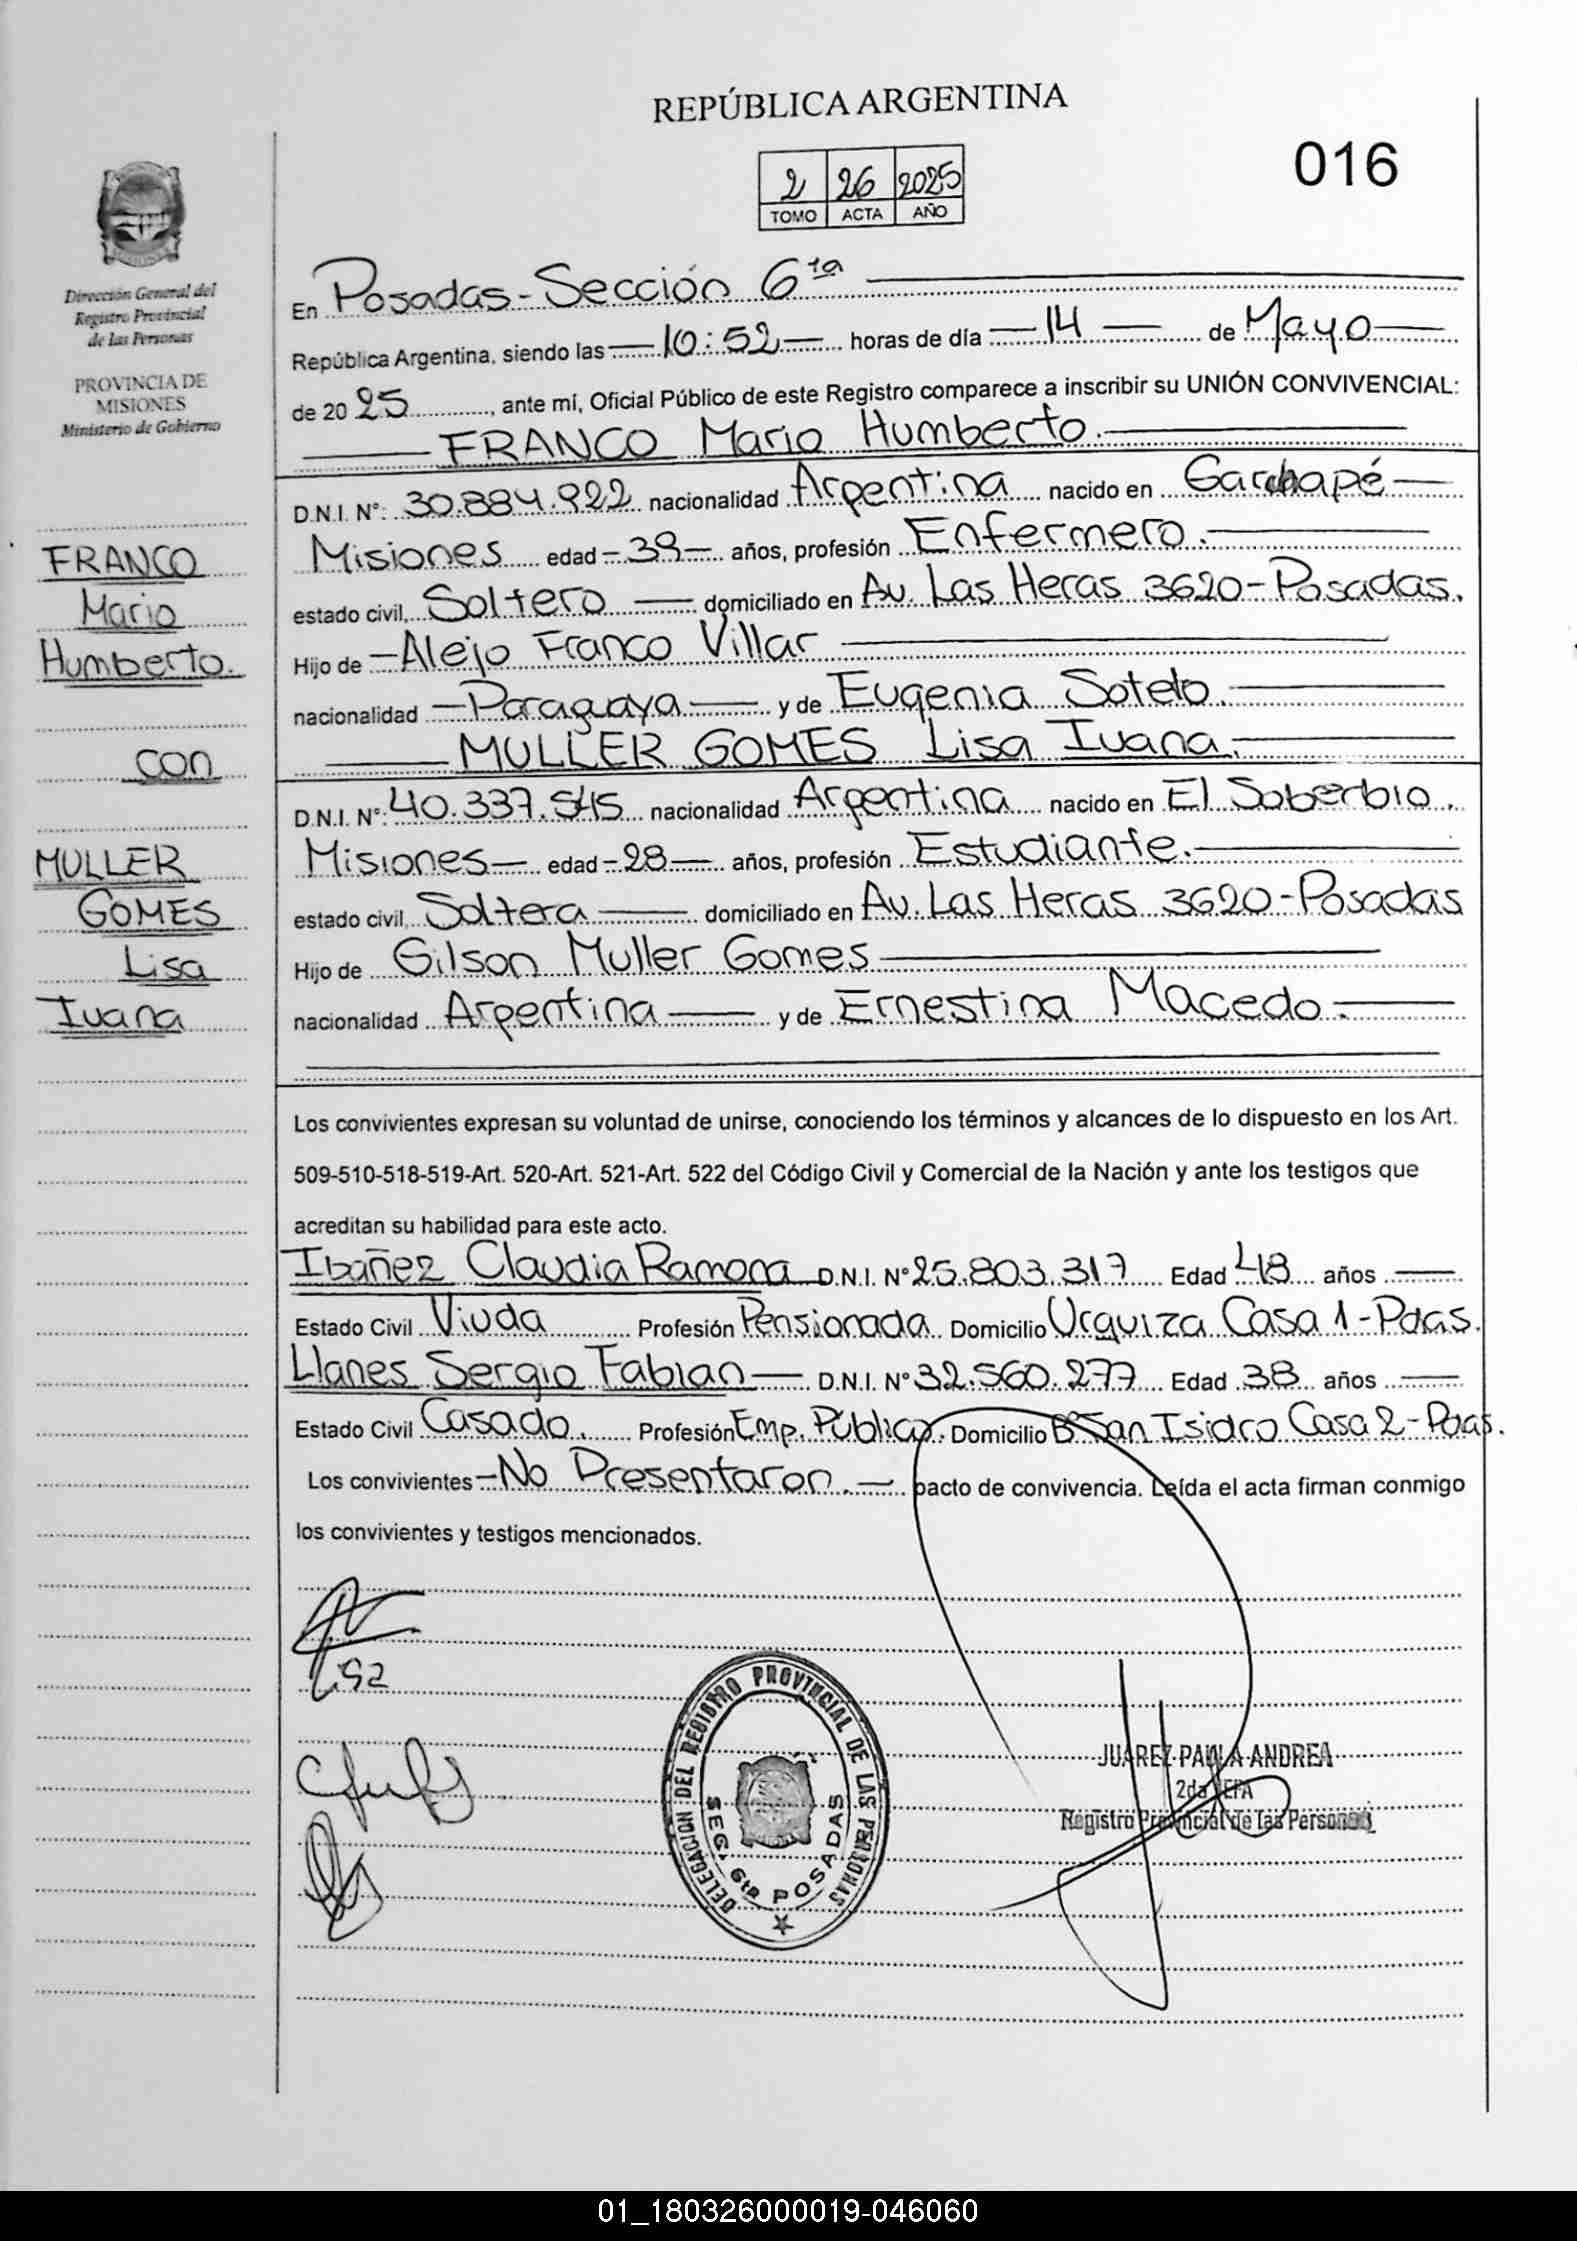 REPÚBLICA ARGENTINA
016
2 26 2025
TOMO ACTA AÑO
Dirección General del
Registro Provincial
de las Personas
PROVINCIA DE
MISIONES
Ministerio de Gobierno
FRANCO
Mario
Humberto.
con
MULLER
GOMES
Lisa
Ivana
En Posadas - Sección 6ta
República Argentina, siendo las 10:52 horas de día 14 de Mayo
de 20 25, ante mí, Oficial Público de este Registro comparece a inscribir su UNIÓN CONVIVENCIAL:
FRANCO Mario Humberto.
D.N.I. N°: 30.884.922 nacionalidad Argentina nacido en Garuhapé
Misiones edad 39 años, profesión Enfermero.
estado civil, Soltero domiciliado en Av. Las Heras 3620 - Posadas.
Hijo de Alejo Franco Villar
nacionalidad Paraguaya y de Eugenia Sotelo.
MULLER GOMES Lisa Ivana.
D.N.I. N°: 40.337.545 nacionalidad Argentina nacido en El Soberbio.
Misiones edad 28 años, profesión Estudiante.
estado civil, Soltera domiciliado en Av. Las Heras 3620 - Posadas
Hijo de Gilson Muller Gomes
nacionalidad Argentina y de Ernestina Macedo.
Los convivientes expresan su voluntad de unirse, conociendo los términos y alcances de lo dispuesto en los Art.
509-510-518-519-Art. 520-Art. 521-Art. 522 del Código Civil y Comercial de la Nación y ante los testigos que
acreditan su habilidad para este acto.
Ibañez Claudia Ramona D.N.I. N° 25.803.317 Edad 48 años
Estado Civil Viuda Profesión Pensionada Domicilio Urquiza Casa 1 - Pdas.
Llanes Sergio Fabian D.N.I. N° 32.560.277 Edad 38 años
Estado Civil Casado. Profesión Emp. Público. Domicilio B° San Isidro Casa 2 - Pdas.
Los convivientes No Presentaron. pacto de convivencia. Leída el acta firman conmigo
los convivientes y testigos mencionados.
Lisa
DELEGACION DEL REGISTRO PROVINCIAL DE LAS PERSONAS
SEC. 6ta POSADAS
JUAREZ PAULA ANDREA
2da JEFA
Registro Provincial de las Personas
01_180326000019-046060